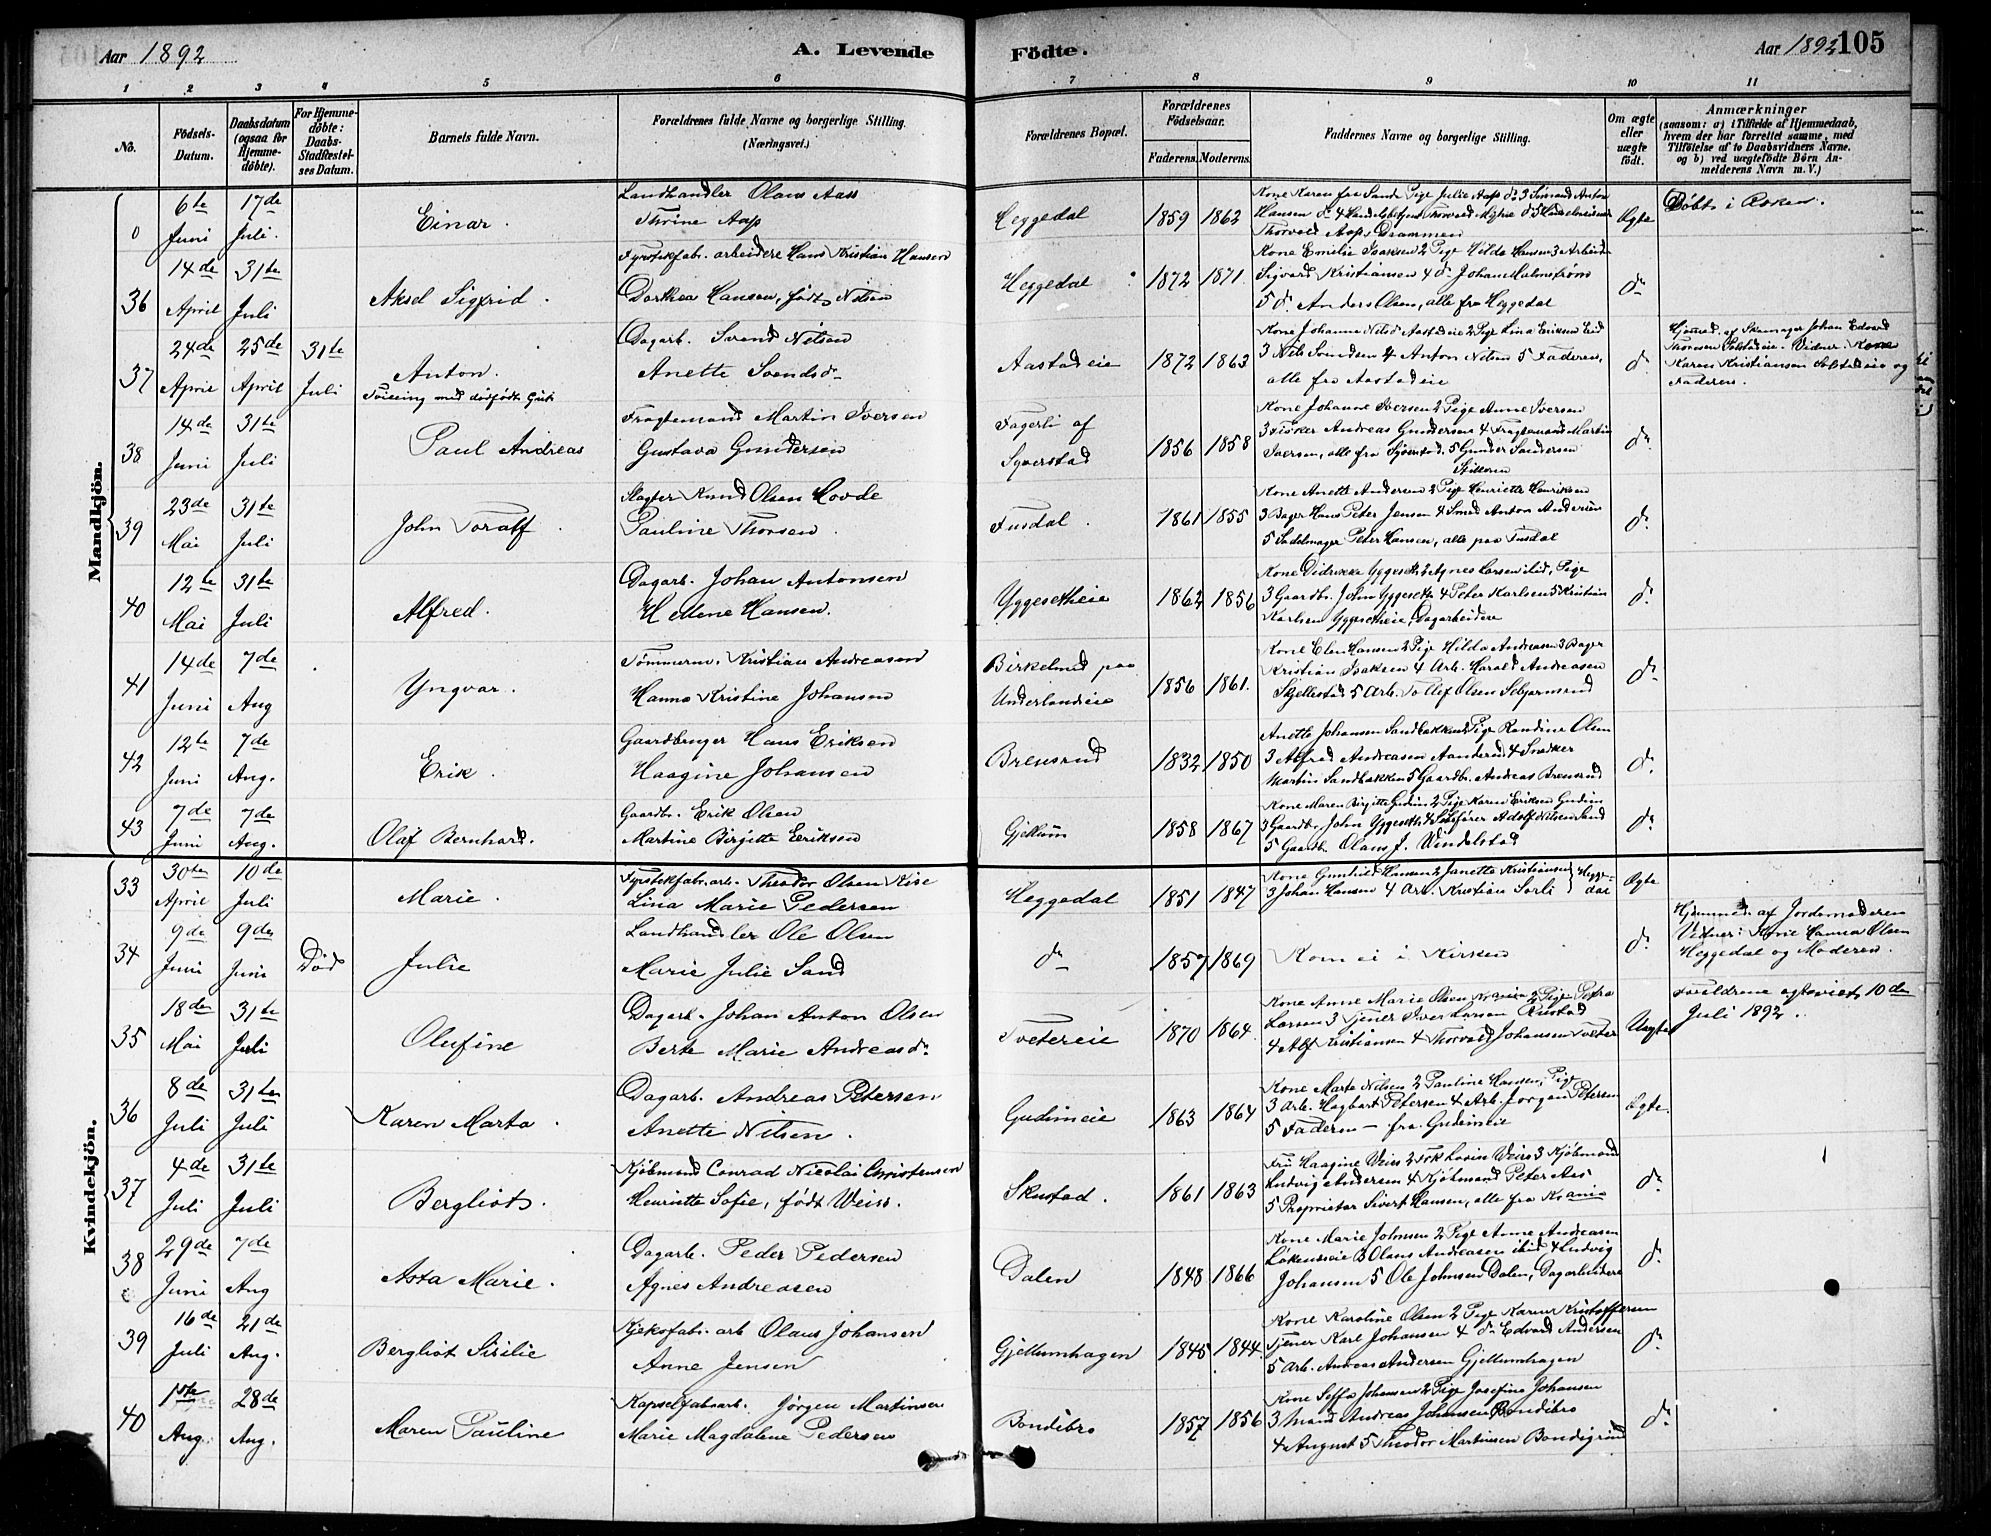 Aar 1892
A. Levende
Födte.
Aar 1892
105
1 2 3 4 5 6 7 8 9 10 11
No.
Födsels-Datum.
Daabsdatum (ogsaa for Hjemme-döbte).
For Hjemme-döbte: Daabs-Stadfæstel-ses Datum.
Barnets fulde Navn.
Forældrenes fulde Navne og borgerlige Stilling. (Næringsvei.)
Forældrenes Bopæl.
Forældrenes Födselsaar.
Faderens. Moderens.
Faddernes Navne og borgerlige Stilling.
Om ægte eller uægte födt.
Anmærkninger
(saasom: a) i Tilfælde af Hjemmedaab, hvem der har forrettet samme, med Tilföielse af to Daabsvidners Navne. og b) ved uægtefödte Börn An-melderens Navn m. V.)
Mandkjön.
0 6te Juni 17de Juli. Einar.
Landhandler Olaus Aass
Thrine Aass
Heggedal 1859 1862
Kone Karen fra Sand Pige Julie Aass
Thorvald Aas, Drammen
Ægte
Döbt i Asker.
36 14de April 31te Juli Aksel Sigfrid.
Fyrstikfab. arbeidere Hans Kristian Hansen
Dorthea Hansen, födt Nilsen
Heggedal 1872 1871
Kone Emilie Isaksen 2 Pige Hilda Hansen 3 Arbeider
Sigvard Kristiansen 4 do Johan Malmström
5 do Anders Olsen, alle fra Heggedal
do
37 24de April 25de April 31te Juli Anton.
Tvilling med dödfödt Gut
Dagarb. Svend Nilsen
Anette Svendsdr
Aastadeie 1872 1863
Kone Johanne Nilsdr Aastadeie 2 Pige Lina Eriksen Eid
3 Nils Svendsen 4 Anton Nilsen 5 Faderen,
alle fra Aastadeie
do
Hjemmed. af Skomager Johan Edvard
Thoresen Solstadeie. Vidner: Kone
Karen Kristiansen Solstadeie og
Faderen.
38 14de Juni 31te Juli Paul Andreas
Fragtemand Martin Iversen
Gustava Gundersen
Fagerli af
Syverstad 1856 1858
Kone Johanne Iversen 2 Pige Anne Iversen
3 Fisker Andreas Gundersen 4 Fragtemand Martin
Iversen, alle fra Syverstad. 5 Gunder Gundersen
do
39 23de Mai 31te Juli John Toralf
Slagter Knud Olsen Hovde
Pauline Thorsen
Fusdal. 1861 1855
Kone Anette Andersen 2 Pige Henriette Henriksen
3 Bager Hans Peter Jensen 4 Smed Anton Andersen
5 Sadelmager Peter Hansen, alle paa Fusdal
do
40 12te Mai 31te Juli Alfred.
Dagarb. Johan Antonsen
Helene Hansen.
Yggesetheie 1862 1856
Kone Didrikke Yggeseth 2 Agnes Larsen ibid, Pige
3 Gaardbr. John Yggeseth 4 Peter Karlsen 5 Kristian
Karlsen Yggesetheie, Dagarbeidere
do
41 14de Juni 7de Aug Yngvar.
Tömmerm. Kristian Andreasen
Hanna Kristine Johansen
Birkelund paa
Underlandeie 1856 1861.
Kone Elen Hansen 2 Pige Hilda Andreasen 3 Bager
Kristian Isaksen 4 Arb. Harald Andreasen
Skjellestad 5 Arb. Tollef Olsen
do
42 12te Juni 7de Aug. Erik.
Gaardbruger Hans Eriksen
Haagine Johansen
Brensrud 1832 1850
Anette Johansen Sandbakken 2 Pige Randine Olsen
3 Alfred Andreasen Aanderud 4 Snedker
Martin Sandbakken 5 Gaardbr. Andreas Brensrud
do
43 7de Juni 7de Aug. Olaf Bernhard.
Gaardbr. Erik Olsen
Martine Birgitte Eriksen
Gjellum 1858 1867
Kone Maren Birgitte Gudim 2 Pige Karen Eriksen Gudim
3 Gaardbr. John Yggeseth 4 Skibsförer Adolf Nilsen
5 Gaardb. Olaus J. Vindelstad
do
Kvindekjön.
33 30te April 10de Juli Marie.
Fyrstikfab. arb. Theodor Olsen Kise
Lina Marie Pedersen
Heggedal 1851 1847
Kone Gunhild Hansen 2 Janette Kristiansen
3 Johan Hansen 4 Arb. Kristian Sorli } Heggedal
Ægte
34 9de Juni 9de Juni Död Julie
Landhandler Ole Olsen
Marie Julie Sand
do 1857 1869
Kom ei i Kirken
do
Hjemmed. af Jordemoderen
Vidner: Kone Hanna Olsen
Heggedal og Moderen.
35 18de Mai 31te Juli Olufine
Dagarb. Johan Anton Olsen
Berte Marie Andreasdr
Tvetereie 1870 1864
Kone Anne Marie Olsen 2 Pige Petra
Larsen 3 Tjener Iver Larsen Rustad
4 Alf Kristiansen 4 Thorvald Johansen Tveter
Uægte
Forældrene egteviet 10de
Juli 1892.
36 8de Juli 31te Juli Karen Marta.
Dagarb. Andreas Petersen
Anette Nilsen.
Gudimeie 1863 1864
Kone Marta Nilsen 2 Pauline Hansen, Pige
3 Arb. Hagbart Petersen 4 Arb. Jorgen Petersen
5 Faderen — fra Gudimeie
Ægte.
37 4de Juli 31te Juli Bergliot.
Kjöbmand Conrad Nicolai Christensen
Henriette Sofie, födt Weiss.
Skustad. 1861 1863
Fru Haagine Weiss 2 Frk Lovise Weiss 3 Kjöbmand
Ludvig Andersen 4 Kjöbmand Peter Aas
5 Proprietær Sivert Hansen, alle fra Krania
do
38 29de Juni 7de Aug Asta Marie.
Dagarb. Peder Pedersen
Agnes Andreasen
Dalen 1848 1866
Kone Marie Johnsen 2 Pige Anne Andreasen
Lökenseie 3 Olaus Andreasen ibid 4 Ludvig
Johansen 5 Ole Johnsen Dalen, Dagarbeidere
do
39 16de Juli 21de Aug. Bergliot Sisilie
Kjeksfab. arb Olaus Johansen
Anne Jensen
Gjellumhagen 1845 1844.
Kone Karoline Olsen 2 Pige Karen Kristoffersen
Tjener Karl Johansen 4 do Edvard Andersen
5 Arb. Andreas Andersen Gjellumhagen
do
40 1ste Aug. 28de Aug. Maren Pauline
Kapselfabarb. Jörgen Martinsen
Marie Magdalene Pedersen
Bondibro 1857 1856
Kone Seffa Johansen 2 Pige Josefine Johansen
3 Mand Andreas Johansen Bondibro
4 August 5 Theodor Martinsen Bondigrind
do